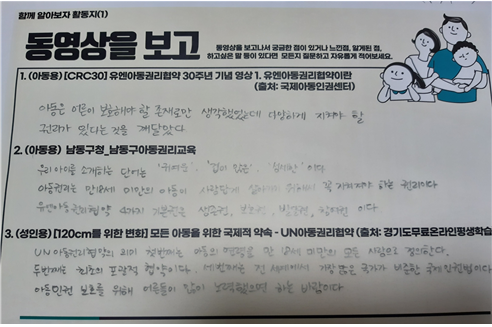 함께 알아보자 활동지(1)
동영상을 보고
동영상을 보고나서 궁금한 점이 있거나 느낀점, 알게된 점,
하고싶은 말 등이 있다면 모든지 질문하고 자유롭게 적어보세요.
1. (아동용) [CRC30] 유엔아동권리협약 30주년 기념 영상 1. 유엔아동권리협약이란
(출처: 국제아동인권센터)
아동은 어른이 보호해야 할 존재로만 생각했었는데 다양하게 지켜야 할
권리가 있다는 것을 깨달았다.
2. (아동용) 남동구청_남동구아동권리교육
우리 아이를 소개하는 단어는 '귀여운', '겁이 많은', 이다
아동권리는 만18세 미만의 아동이 사람답게 살아가기 위해서 꼭 가져야 하는 권리이다
유엔아동권리협약 4가지 기본권은 생존권, 보호권, 발달권, 참여권 이다.
3. (성인용) [120cm를 위한 변화] 모든 아동을 위한 국제적 약속 - UN아동권리협약 (출처: 경기도무료온라인평생학습
UN 아동권리협약의 의미 첫번째는 아동의 연령을 만 18세 미만의 모든 사람으로 정의한다.
두번째로 최초의 포괄적 협약이다. 세번째는 전 세계에서 가장 많은 국가가 비준한 국제인권법이다
아동인권 보호를 위해 어른들이 많이 노력했으면 하는 바람이다